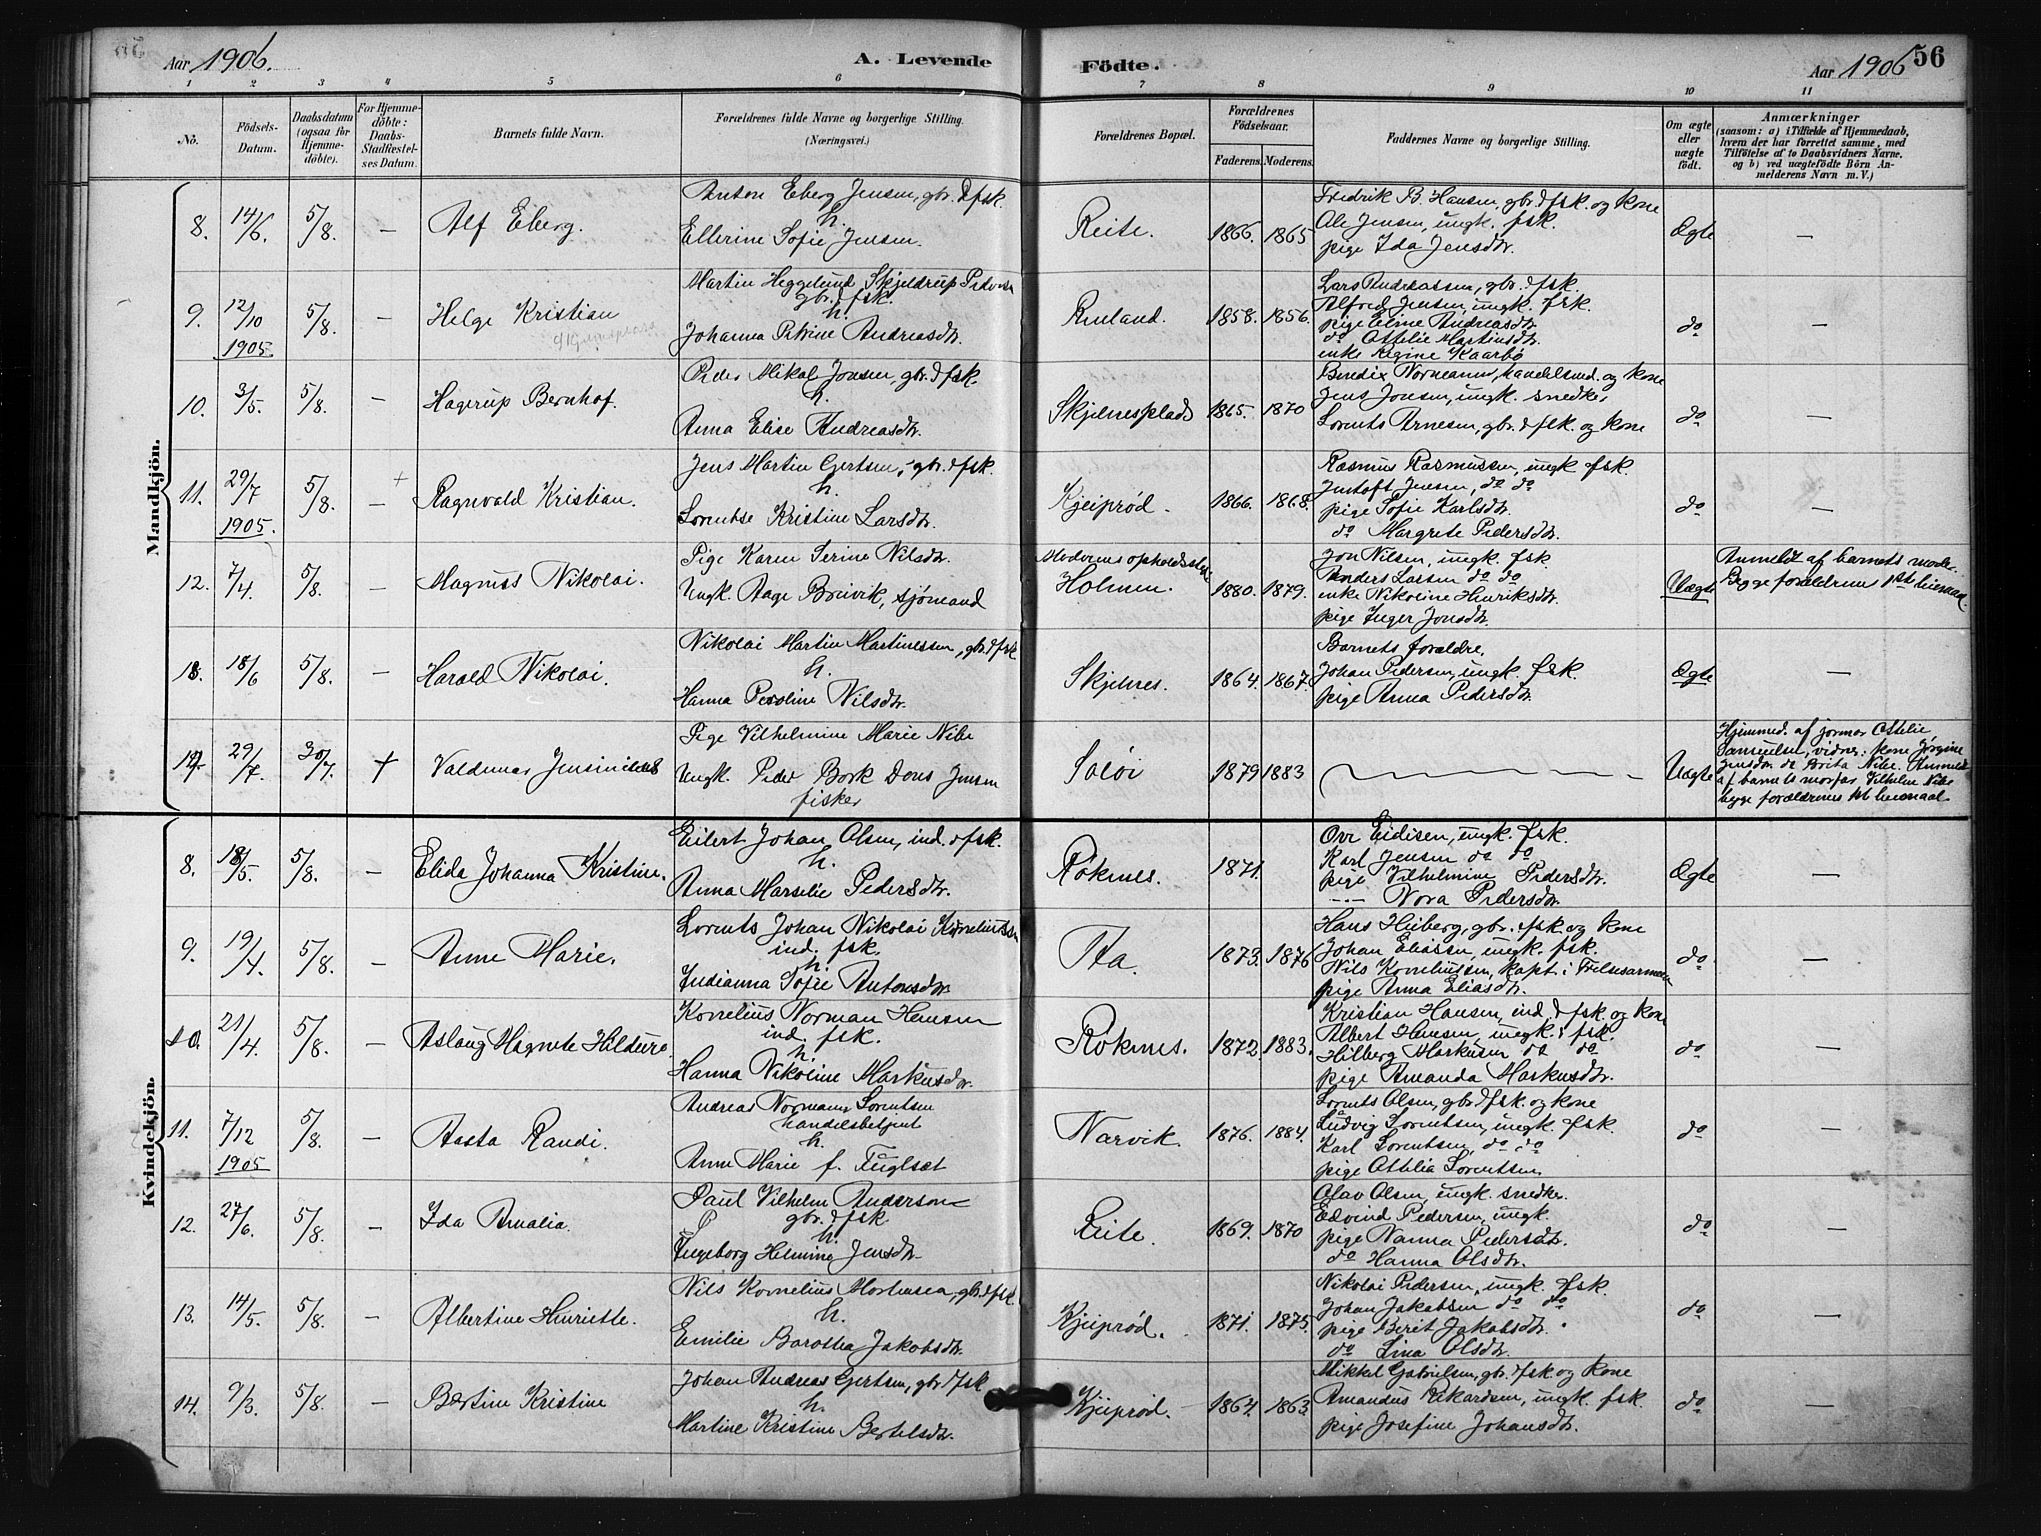 Aar 1906.
A. Levende
Födte.
Aar 1906
56
1 2 3 4 5 6 7 8 9 10 11
No.
Födsels-Datum.
Daabsdatum (ogsaa for Hjemme-döbte).
For Hjemme-döbte: Daabs-Stadfæstel-ses Datum.
Barnets fulde Navn.
Forældrenes fulde Navne og borgerlige Stilling. (Næringsvei.)
Forældrenes Bopæl.
Forældrenes Födselsaar.
Faderens. Moderens.
Faddernes Navne og borgerlige Stilling.
Om ægte eller uægte födt.
Anmærkninger
(saasom: a) i Tilfælde af Hjemmedaab, hvem der har forrettet samme, med Tilföielse af to Daabsvidners Navne, og b) ved uægtefödte Börn An-melderens Navn m. V.)
Mandkjön.
8. 14/6. 5/8. — Alf Eberg.
Anton Eberg Jensen, gbr. & fsk.
h.
Ellerine Sofie Jensen.
Reite. 1866. 1865
Fredrik B. Hansen, gbr. & fsk. og kone
Ole Jensen, ungk. fsk.
pige Ida Jensdtr.
Ægte —
9. 12/10 1905 5/8. — Helge Kristian
Martin Heggelund Skjeldrup Pedersen
gbr. & fsk.
h.
Johanna Petrine Andreasdtr.
1858. 1856.
Lars Andreassen, gbr. & fsk.
Alfred Jensen, ungk. fsk.
pige Eline Andreasdtr.
do Attelie Martinsdtr.
enke Regine Kaarbø
do —
10. 3/5. 5/8. — Hagerup Bernhof.
Peder Mikal Jensen, gbr. & fsk.
h.
Anna Elise Andreasdtr.
Skjelnesplads 1865. 1870
Bendix Normann, handelsmd. og kone
Jens Jensen, ungk. snedker
Lorents Arnesen, gbr. & fsk. og kone
do —
11. 29/7 1905. 5/8. — Ragnvald Kristian.
Jens Martin Gertsen, gbr. & fsk.
h.
Lorentse Kristine Larsdtr.
Kjeiprød. 1866. 1868.
Rasmus Rasmussen, ungk. fsk.
Justoft Jensen, do do
pige Sofie Karlsdtr.
do Margrete Pedersdtr.
do —
12. 7/4. 5/8. — Magnus Nikolai.
Pige Karen Serine Nilsdtr.
Ungk. Aage Breivik, sjømand
Moderens opholdssted
Holmen. 1880. 1879.
Jon Nilsen, ungk. fsk.
Anders Larsen do do
enke Nikoline Henriksdtr.
pige Inger Jonsdtr.
Uægte
Anmeldt af barnets moder.
Begge forældrenes 1ste leiermaal.
13. 18/6 5/8. — Harald Nikolai.
Nikolai Martin Martinussen, gbr. & fsk
h.
Hanna Peroline Nilsdtr.
Skjelnes. 1864. 1867.
Barnets forældre.
Johan Pedersen, ungk. fsk.
pige Anna Pedersdtr.
Ægte —
14. 29/7. 30/7. † Valdemar
Pige Vilhelmine Marie Nibe
Ungk. Peder Bork Dons Jensen
fisker
1879 1883
Uægte
Hjemmed. af jormor Attelie
Samuelsen, vidner: kone Jørgine
Jensdtr. do Berita Nibe. Anmeldt
af barnets morfar Vilhelm Nibe
begge forældrenes 1st leiermaal.
Kvindekjön.
8. 18/5. 5/8. — Elida Johanna Kristine.
Eilert Johan Olsen, ind. & fsk.
h.
Anna Marselie Pedersdtr.
Røknes. 1871.
Ove Eidisen, ungk. fsk.
Karl Jensen do do
pige Vilhelmine Pedersdtr.
— Nora Pedersdtr.
Ægte —
9. 19/4. 5/8. — Anne Marie.
Lorents Johan Nikolai Korneliussen
ind. fsk.
h.
Indianna Sofie Antonsdtr.
Taa. 1873. 1876
Hans Heiberg, gbr. & fsk. og kone
Johan Eliassen, ungk. fsk.
Nils Korneliussen, kapt. i Frelsesarmeen
pige Anna Eliasdtr.
do —
10. 21/4. 5/8. — Aslaug Magnete Hildeure
Kornelius Norman Hansen
ind. fsk.
h.
Hanna Nikoline Markusdtr.
Røknes. 1872 1883.
Kristian Hansen, ind. & fsk. og kone
Albert Hansen, ungk. fsk.
Hilberg Markusen do do
pige Amanda Markusdtr.
do —
11. 7/12 1905 5/8. — Aasta Randi.
Andreas Normann Lorentsen
handelsbetjent
h.
Anne Marie f. Fuglset
Narvik. 1876. 1884.
Lorents Olsen, gbr. & fsk. og kone
Ludvig Lorentsen, ungk. fsk.
Karl Lorentsen, do do
pige Attelia Lorentsen
do —
12. 27/6. 5/8. — Ida Amalia.
Paul Vilhelm Anderson
gbr. & fsk
h.
Ingeborg Helmine Jensdtr.
Leite. 1869. 1870
Olav Olsen, ungk. snedker.
Edvind Pedersen, ungk.
pige Nanna Pedersdtr.
do Hanna Olsdtr.
do —
13. 14/5. 5/8. — Albertine Henriette.
Nils Kornelius Mortensen, gbr. & fsk.
h.
Emilie Barotha Jakobsdtr.
Kjeiprød. 1871. 1875.
Nikolai Pedersen, ungk. fsk.
Johan Jakobsen do do
pige Berit Jakobsdtr.
do Lina Olsdtr.
do —
14. 9/3. 5/8. — Bertine Kristine
Johan Andreas Gertsen, gbr. & fsk.
h.
Martine Kristine Bertelsdtr.
Kjeiprød. 1864. 1863
Mikkel Gabrielsen, gbr. & fsk. og kone
Amandus Rikardsen, ungk. fsk.
pige Josefine Johansdtr.
do —